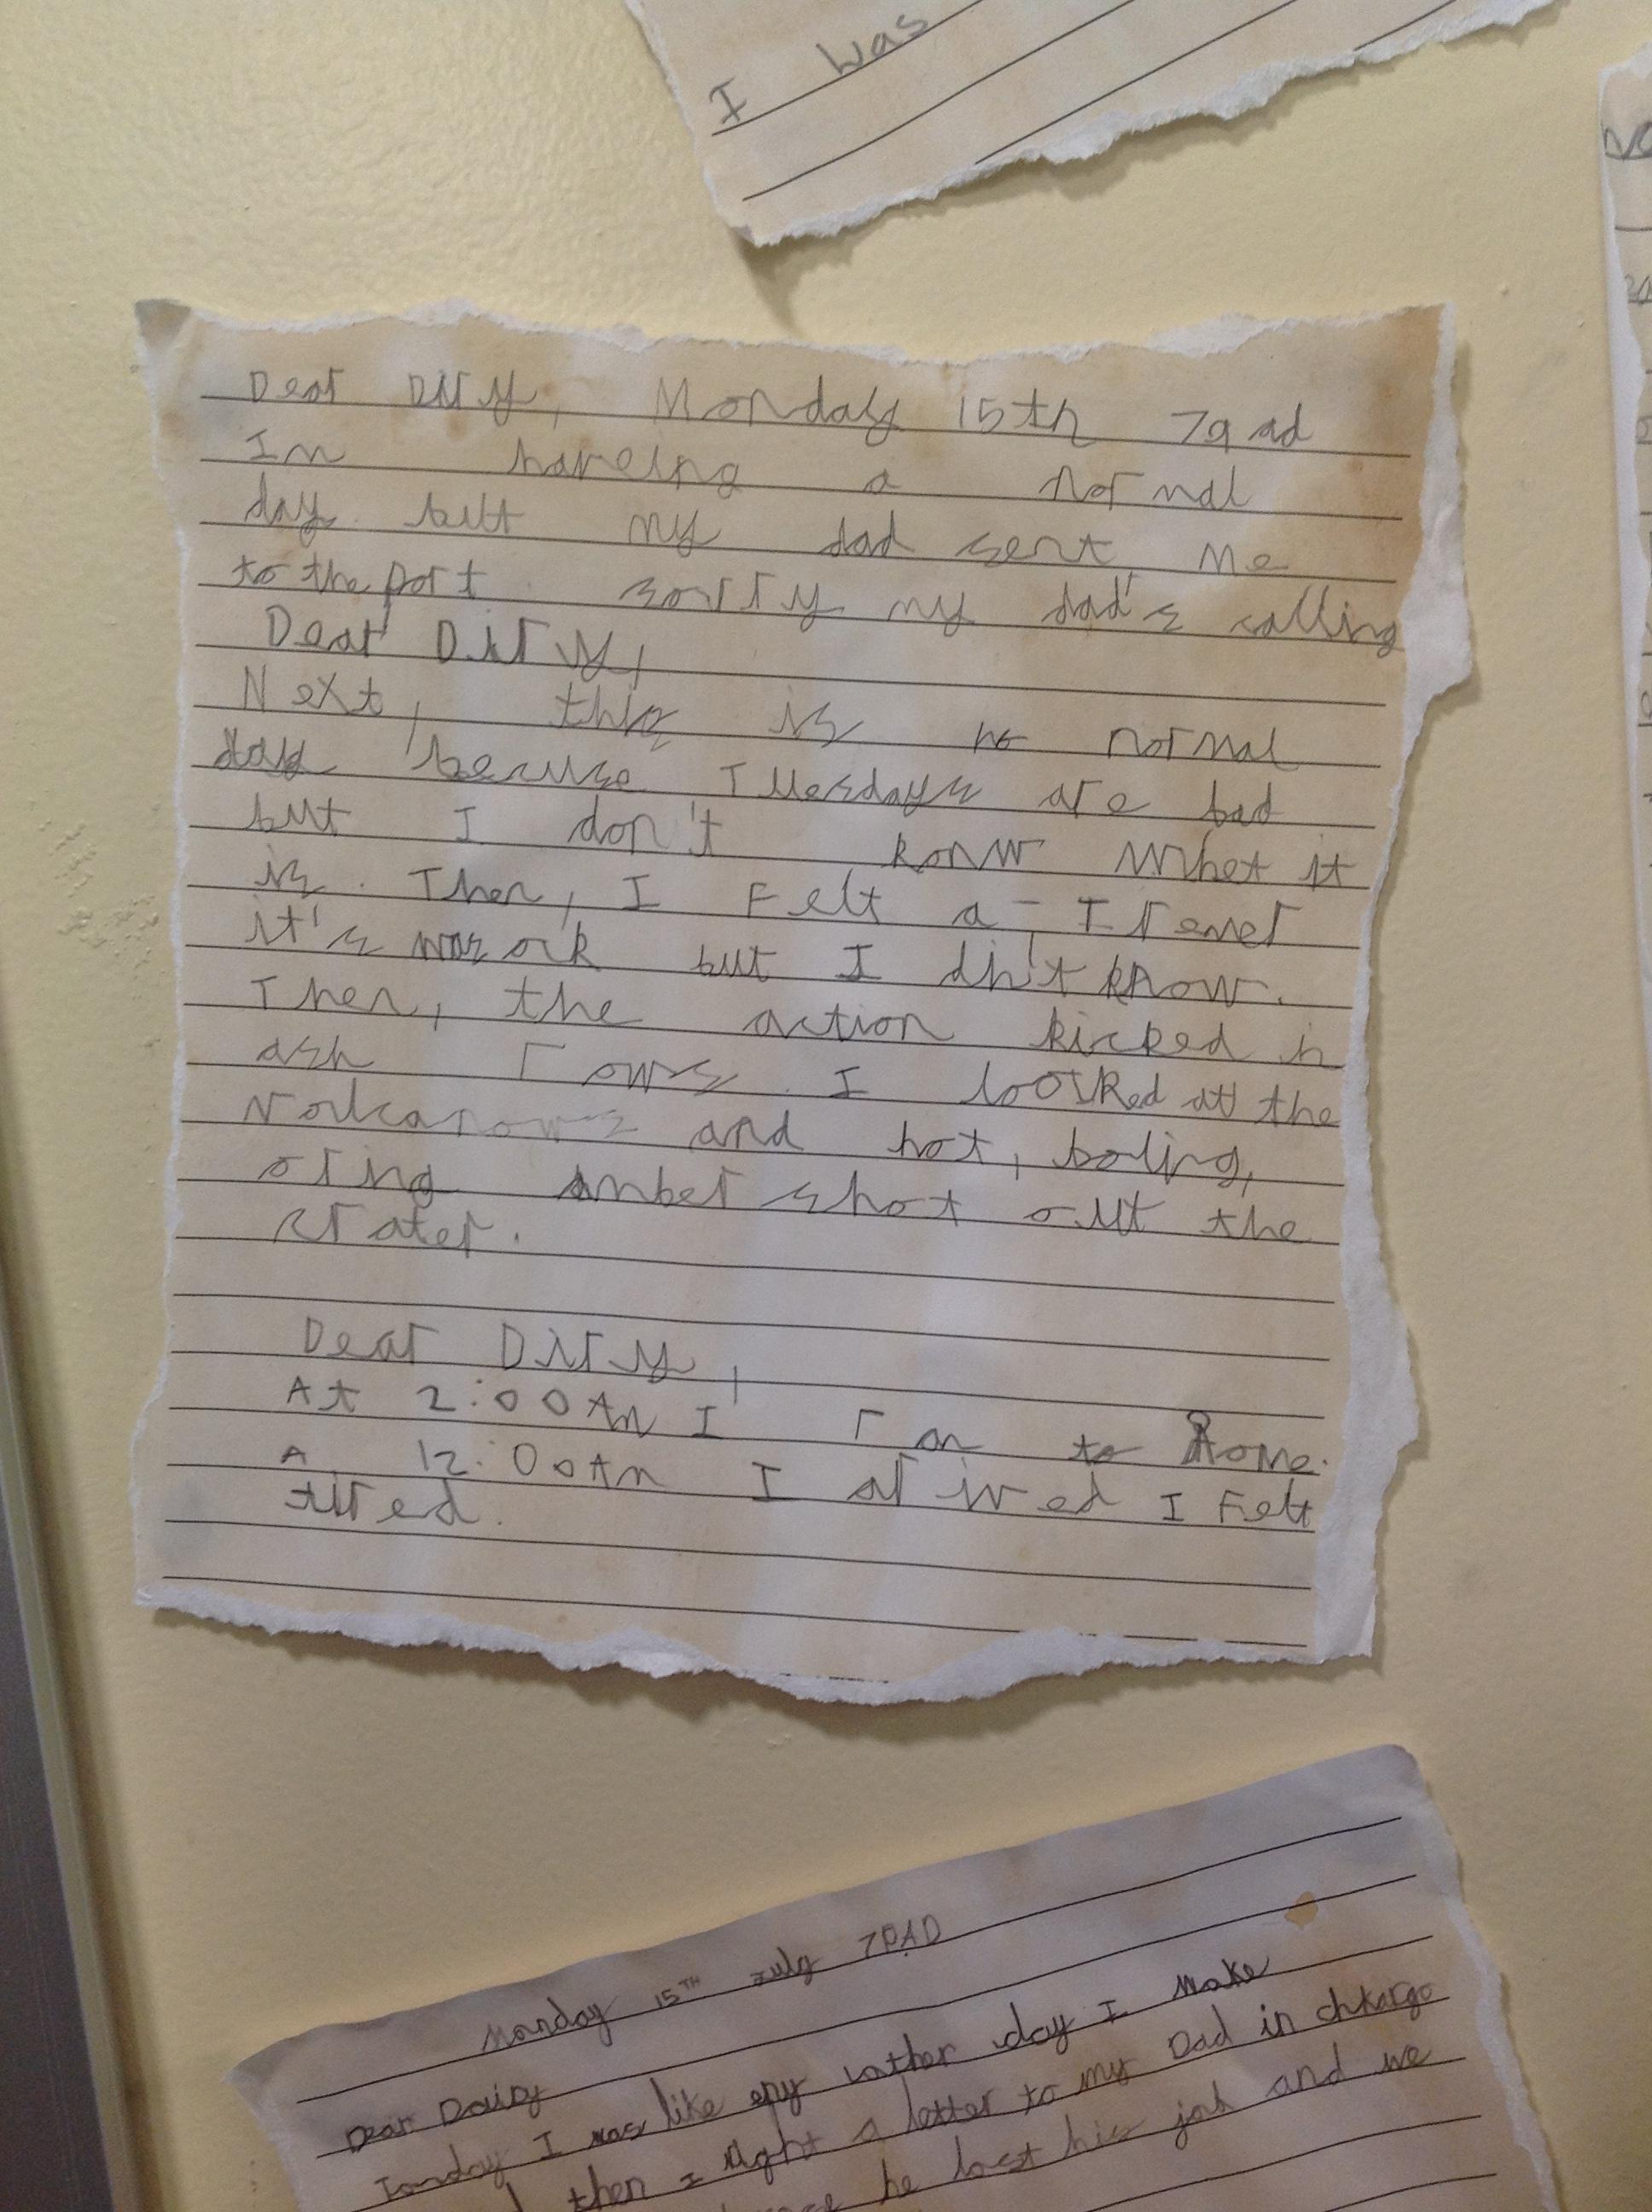 I was
Dear Diry, Monday 15th 79 ad
Im haveing a normal
day but my dad sent me
to the port. sorry my dad's calling
Dear Diry,
Next, this is no normal
day becuse Tuesdays are bad
but I don't konw whet it
is. Then, I Felt a - Tremer
it's work but I din't know.
Then, the action kicked in
ash rows. I looked at the
volcanows and hot, boling,
oring amber shot out the
crater.
Dear Diry,
At 2:00Am I ran to Rome.
A 12:00Am I arived I Felt
tired.
Monday 15TH July 79AD
Dear Dairy
Tonday I was like eny uother day I make
then I Right a letter to my Dad in chkargo
he lost his job and we